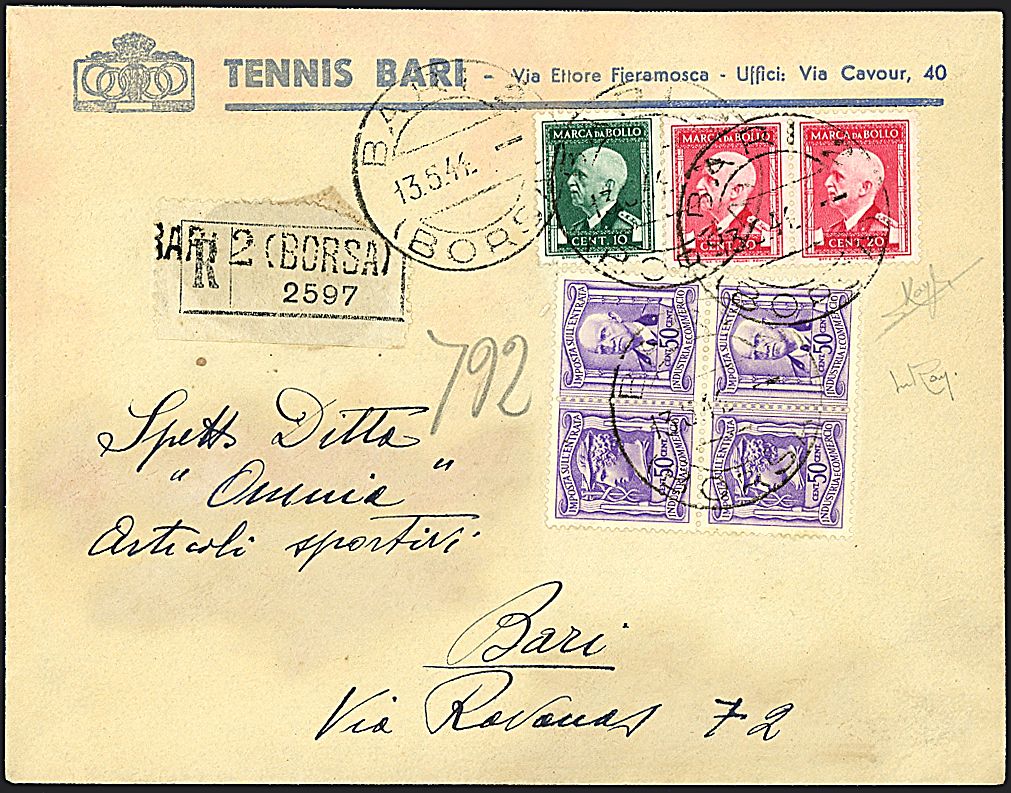 TENNIS BARI - Via Ettore Fieramosca - Uffici: Via Cavour, 40
BARI
13.6.44
(BORSA)
MARCA DA BOLLO
CENT. 10
MARCA DA BOLLO
CENT. 20
MARCA DA BOLLO
CENT. 20
BARI 2 (BORSA)
R
2597
IMPOSTA SULL'ENTRATA
50 CENT
INDUSTRIA E COMMERCIO
IMPOSTA SULL'ENTRATA
50 CENT
INDUSTRIA E COMMERCIO
IMPOSTA SULL'ENTRATA
50 CENT
INDUSTRIA E COMMERCIO
IMPOSTA SULL'ENTRATA
50 CENT
INDUSTRIA E COMMERCIO
792
Spett. Ditta
"Omnia"
Articoli sportivi
Bari
Via Ravanas 72